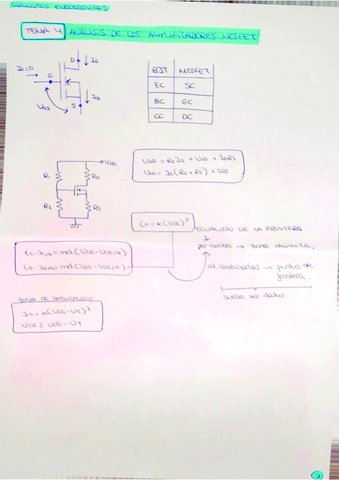 CIRCUITOS ELECTRÓNICOS
TEMA 4 ANÁLISIS DE LOS AMPLIFICADORES MOSFET
D ID
IG=0 G
VGS S ID
BJT MOSFET
EC SC
BC GC
CC DC
VDD
R1 RD
R2 RS
VDD = RD ID + VDS + ID RS
VDD = ID (RD + RS) + VDS
iD = K (VDS)²
ECUACIÓN DE LA FRONTERA
por arriba → zona óhmica,
al combinarlas → puntos de frontera.
suele ser dato
ZONA DE SATURACIÓN
ID = K (VGS - VT)²
VDS ≥ VGS - VT